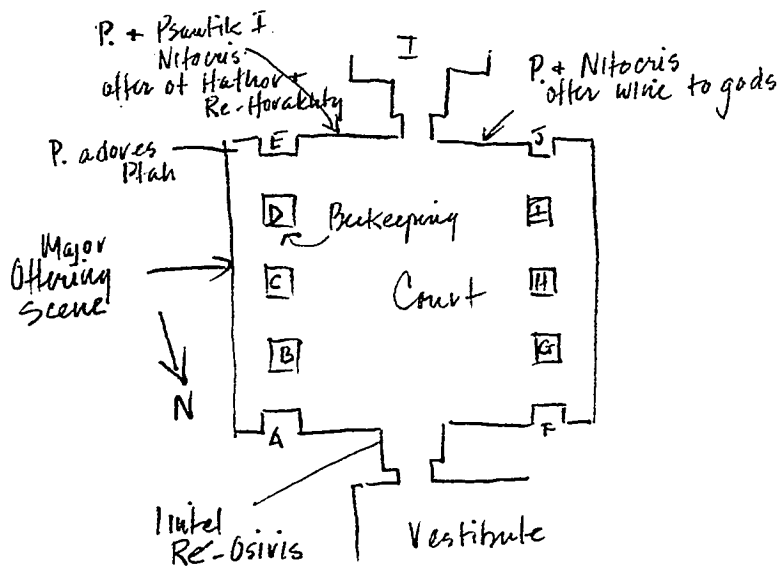 P. + Psamtik I.
Nitocris
offer ot Hathor +
Re-Horakhty
I
P. + Nitocris
offer wine to gods
E
J
P. adores
Ptah
D
Beekeeping
I
Major
Offering
Scene
C
Court
H
B
G
N
A
F
lintel
Re-Osiris
Vestibute